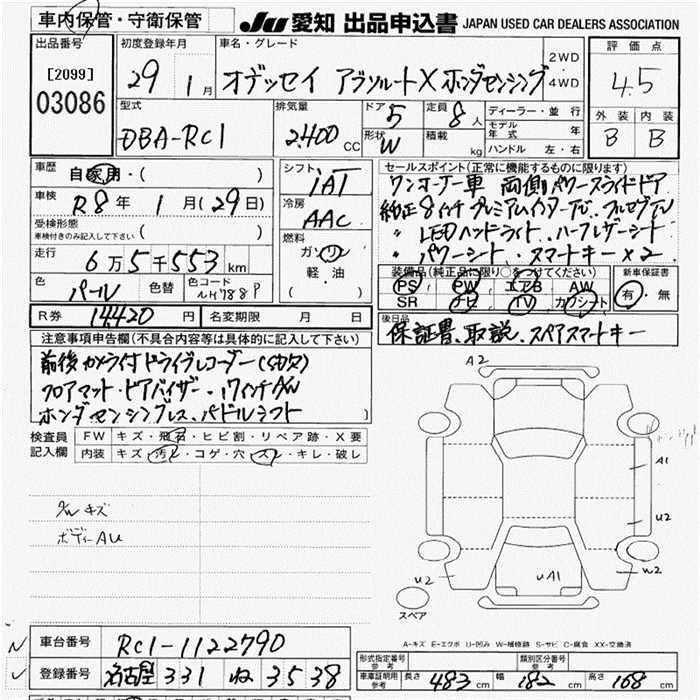 車内保管・守衛保管
JU 愛知 出品申込書 JAPAN USED CAR DEALERS ASSOCIATION
出品番号
[2099]
03086
初度登録年月
29 1月
車名・グレード
オデッセイ アブソルート X ホンダセンシング
2WD
・
4WD
評価点
4.5
外装 内装
B B
型式
DBA-RC1
排気量
2.400 CC
ドア 5
定員 8人
形状 W
積載 kg
ディーラー・並行
モデル年式 年
ハンドル 左・右
車歴
自家用・( )
車検
R8年 1月(29日)
受検形態
車検付きのみ記入して下さい ( )
走行
6万5千553km
色
パール
色替
色コード
NH788P
シフト
IAT
冷房
AAC
燃料
ガソリン
軽・油
( )
セールスポイント(正常に機能するものに限ります)
ワンオーナー車 両側パワースライドドア
純正8インチプレミアムインターナビ、フルセグTV
〃 LEDヘッドライト、ハーフレザーシート
〃 パワーシート、スマートキー×2
装備品(純正品に限り○をつけてください)
PS PW エアB AW
SR ナビ TV カワシート
新車保証書
有・無
R券 14,420円
名変期限 月 日
後日品
保証書、取説、スペアスマートキー
注意事項申告欄(不具合内容等は具体的に記入して下さい)
前後カメラ付ドライブレコーダー(SD欠)
フロアマット・ドアバイザー、17インチAW
ホンダセンシングレス、パドルシフト
検査員
記入欄
FW キズ・飛石・ヒビ割・リペア跡・X要
内装 キズ・汚レ・コゲ・穴・スレ・キレ・破レ
キズ
ボディーAU
A2
A1
U2
U2
UA1
W2
スペア
A-キズ E-エクボ U-凹み W-補修跡 S-サビ C-腐食 XX-交換済
車台番号
RC1-1122790
登録番号
名古屋 331 ね 3538
形式指定番号
参考
類別区分番号
参考
車庫証明用
参考
長さ 483cm 幅 182cm 高さ 168cm